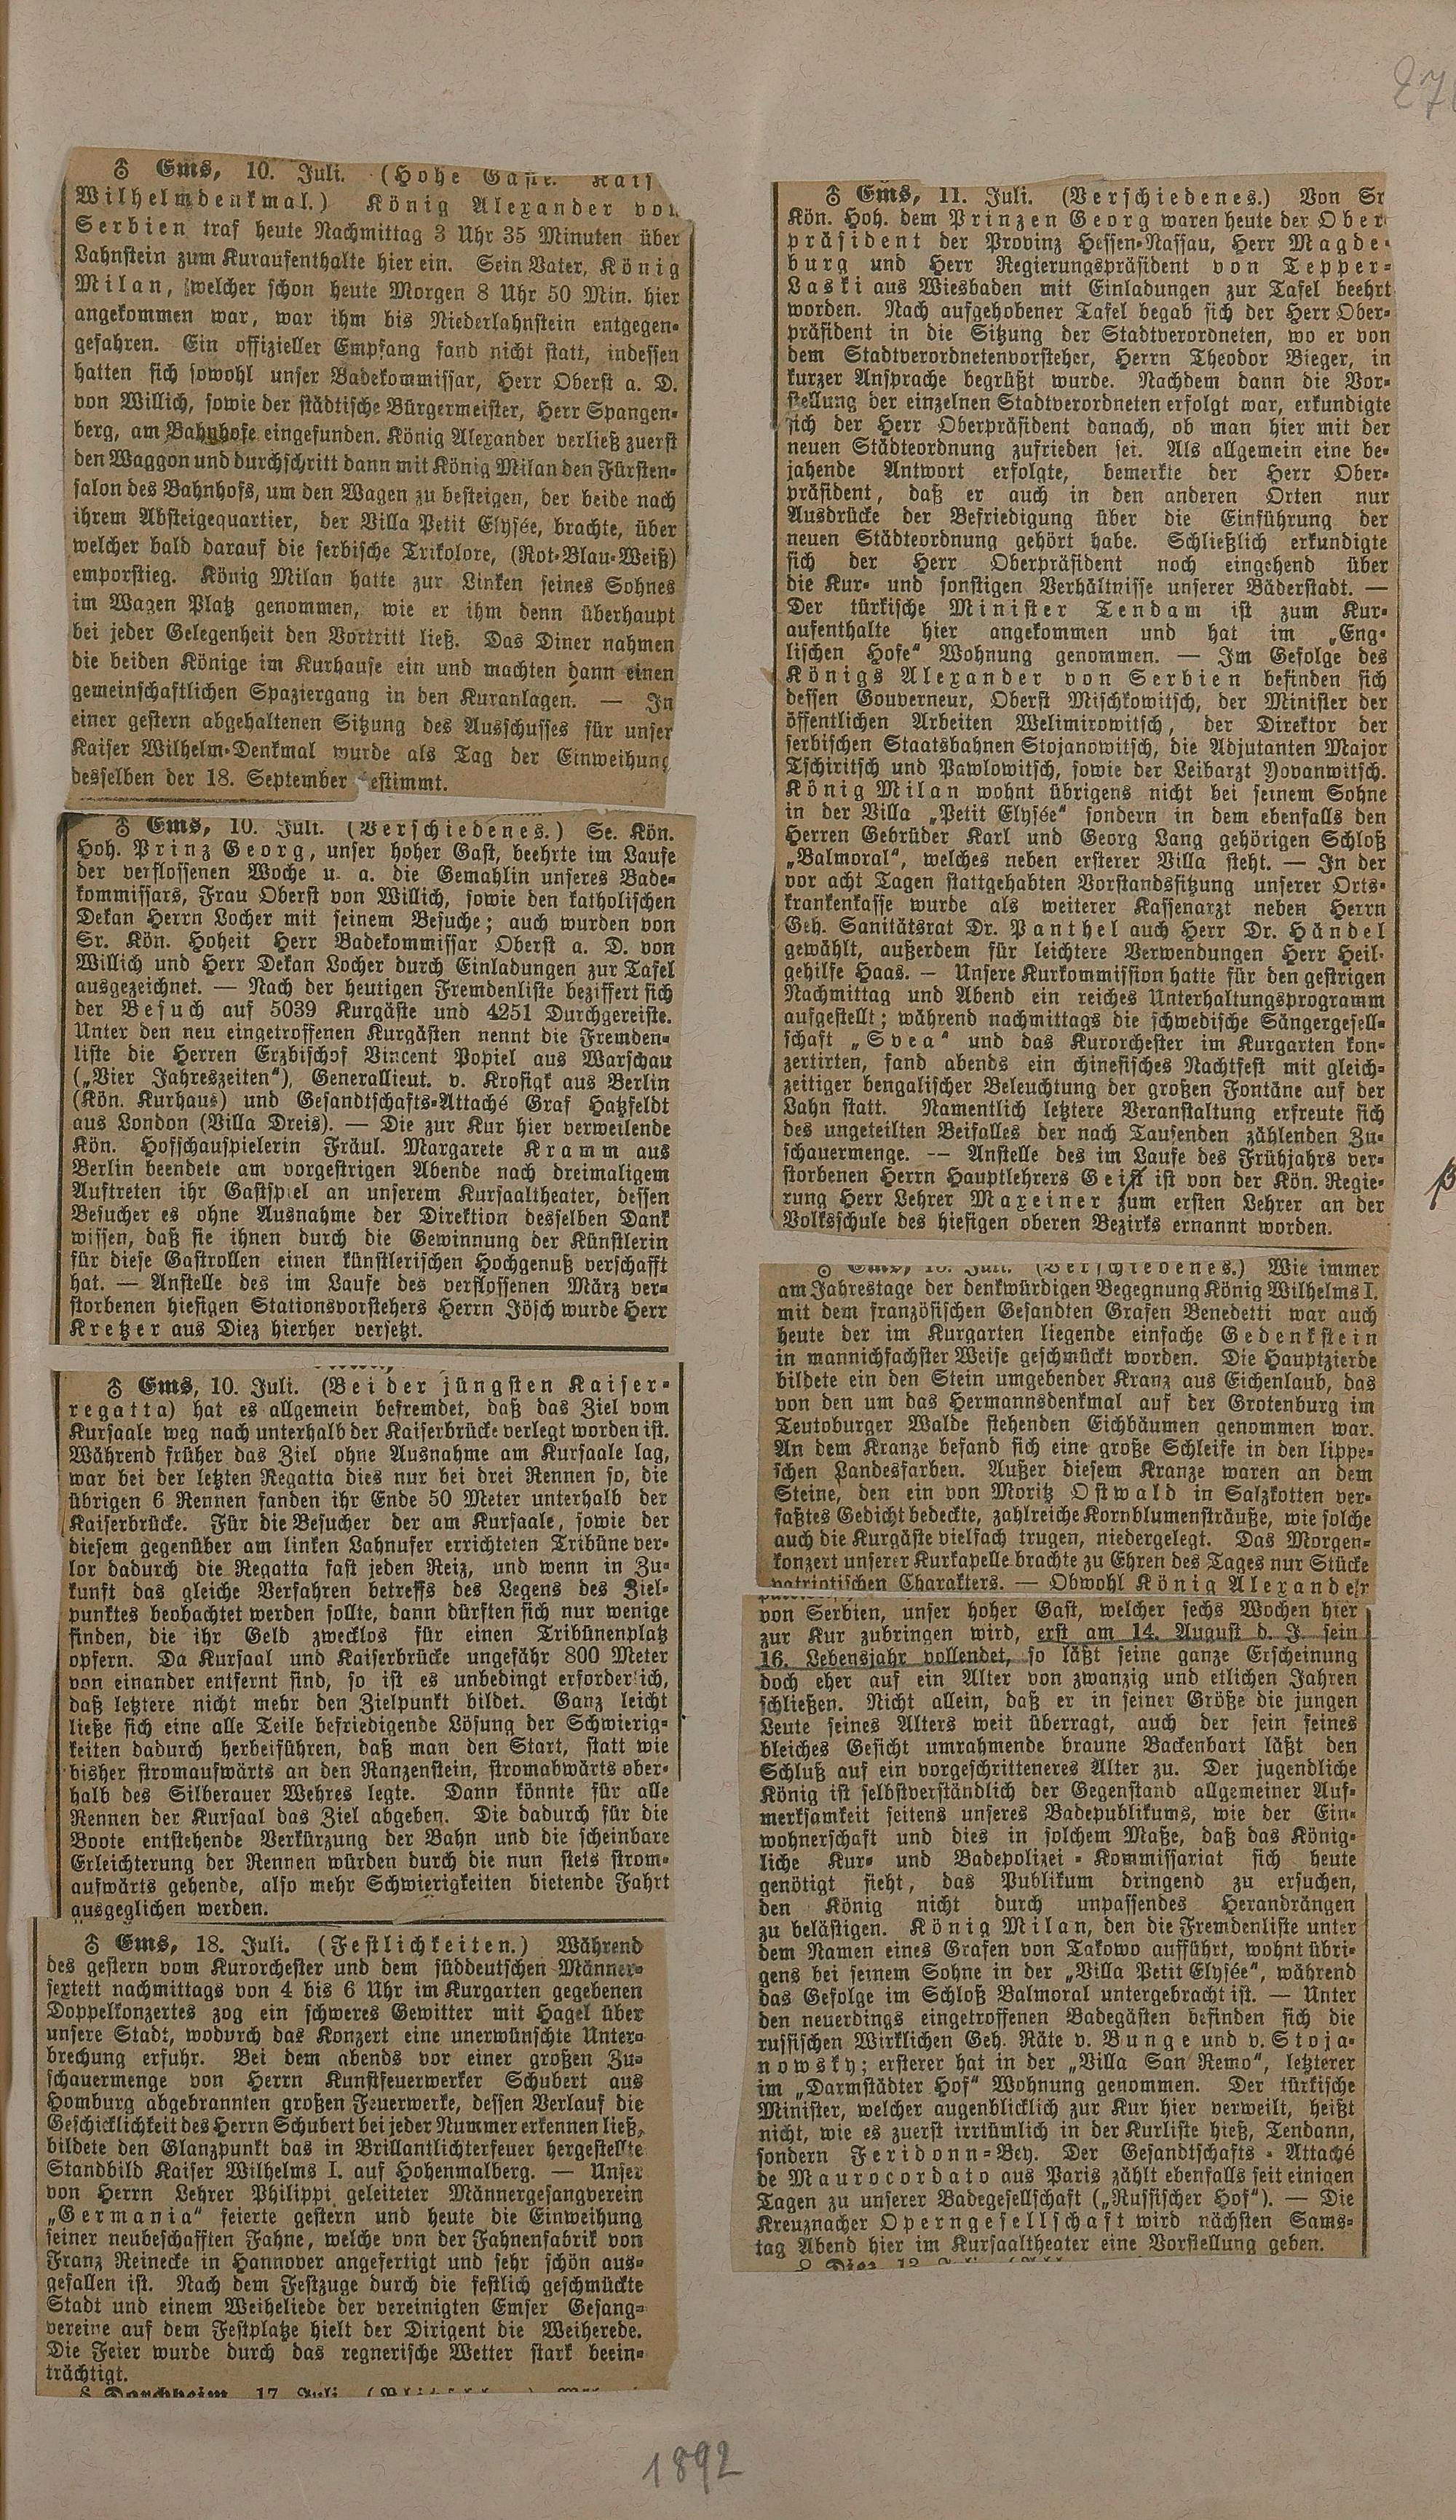 27
♁ Ems, 10. Juli. (Hohe Gäste. Kais
Wilhelmdenkmal.) König Alexander von
Serbien traf heute Nachmittag 3 Uhr 35 Minuten über
Lahnstein zum Kuraufenthalte hier ein. Sein Vater, König
Milan, welcher schon heute Morgen 8 Uhr 50 Min. hier
angekommen war, war ihm bis Niederlahnstein entgegen-
gefahren. Ein offizieller Empfang fand nicht statt, indessen
hatten sich sowohl unser Badekommissar, Herr Oberst a. D.
von Willich, sowie der städtische Bürgermeister, Herr Spangen-
berg, am Bahnhofe eingefunden. König Alexander verließ zuerst
den Waggon und durchschritt dann mit König Milan den Fürsten-
salon des Bahnhofs, um den Wagen zu besteigen, der beide nach
ihrem Absteigequartier, der Villa Petit Elysée, brachte, über
welcher bald darauf die serbische Trikolore, (Rot-Blau-Weiß)
emporstieg. König Milan hatte zur Linken seines Sohnes
im Wagen Platz genommen, wie er ihm denn überhaupt
bei jeder Gelegenheit den Vortritt ließ. Das Diner nahmen
die beiden Könige im Kurhause ein und machten dann einen
gemeinschaftlichen Spaziergang in den Kuranlagen. — In
einer gestern abgehaltenen Sitzung des Ausschusses für unser
Kaiser Wilhelm-Denkmal wurde als Tag der Einweihung
desselben der 18. September estimmt.
♁ Ems, 10. Juli. (Verschiedenes.) Se. Kön.
Hoh. Prinz Georg, unser hoher Gast, beehrte im Laufe
der verflossenen Woche u. a. die Gemahlin unseres Bade-
kommissars, Frau Oberst von Willich, sowie den katholischen
Dekan Herrn Locher mit seinem Besuche; auch wurden von
Sr. Kön. Hoheit Herr Badekommissar Oberst a. D. von
Willich und Herr Dekan Locher durch Einladungen zur Tafel
ausgezeichnet. — Nach der heutigen Fremdenliste beziffert sich
der Besuch auf 5039 Kurgäste und 4251 Durchgereiste.
Unter den neu eingetroffenen Kurgästen nennt die Fremden-
liste die Herren Erzbischof Vincent Popiel aus Warschau
(„Vier Jahreszeiten“), Generallieut. v. Krosigk aus Berlin
(Kön. Kurhaus) und Gesandtschafts-Attaché Graf Hatzfeldt
aus London (Villa Dreis). — Die zur Kur hier verweilende
Kön. Hofschauspielerin Fräul. Margarete Kramm aus
Berlin beendete am vorgestrigen Abende nach dreimaligem
Auftreten ihr Gastspiel an unserem Kursaaltheater, dessen
Besucher es ohne Ausnahme der Direktion desselben Dank
wissen, daß sie ihnen durch die Gewinnung der Künstlerin
für diese Gastrollen einen künstlerischen Hochgenuß verschafft
hat. — Anstelle des im Laufe des verflossenen März ver-
storbenen hiesigen Stationsvorstehers Herrn Jösch wurde Herr
Kretzer aus Diez hierher versetzt.
♁ Ems, 10. Juli. (Bei der jüngsten Kaiser-
regatta) hat es allgemein befremdet, daß das Ziel vom
Kursaale weg nach unterhalb der Kaiserbrücke verlegt worden ist.
Während früher das Ziel ohne Ausnahme am Kursaale lag,
war bei der letzten Regatta dies nur bei drei Rennen so, die
übrigen 6 Rennen fanden ihr Ende 50 Meter unterhalb der
Kaiserbrücke. Für die Besucher der am Kursaale, sowie der
diesem gegenüber am linken Lahnufer errichteten Tribüne ver-
lor dadurch die Regatta fast jeden Reiz, und wenn in Zu-
kunft das gleiche Verfahren betreffs des Legens des Ziel-
punktes beobachtet werden sollte, dann dürften sich nur wenige
finden, die ihr Geld zwecklos für einen Tribünenplatz
opfern. Da Kursaal und Kaiserbrücke ungefähr 800 Meter
von einander entfernt sind, so ist es unbedingt erforderlich,
daß letztere nicht mehr den Zielpunkt bildet. Ganz leicht
ließe sich eine alle Teile befriedigende Lösung der Schwierig-
keiten dadurch herbeiführen, daß man den Start, statt wie
bisher stromaufwärts an den Ranzenstein, stromabwärts ober-
halb des Silberauer Wehres legte. Dann könnte für alle
Rennen der Kursaal das Ziel abgeben. Die dadurch für die
Boote entstehende Verkürzung der Bahn und die scheinbare
Erleichterung der Rennen würden durch die nun stets strom-
aufwärts gehende, also mehr Schwierigkeiten bietende Fahrt
ausgeglichen werden.
♁ Ems, 18. Juli. (Festlichkeiten.) Während
des gestern vom Kurorchester und dem süddeutschen Männer-
sextett nachmittags von 4 bis 6 Uhr im Kurgarten gegebenen
Doppelkonzertes zog ein schweres Gewitter mit Hagel über
unsere Stadt, wodurch das Konzert eine unerwünschte Unter-
brechung erfuhr. Bei dem abends vor einer großen Zu-
schauermenge von Herrn Kunstfeuerwerker Schubert aus
Homburg abgebrannten großen Feuerwerke, dessen Verlauf die
Geschicklichkeit des Herrn Schubert bei jeder Nummer erkennen ließ,
bildete den Glanzpunkt das in Brillantlichterfeuer hergestellte
Standbild Kaiser Wilhelms I. auf Hohenmalberg. — Unser
von Herrn Lehrer Philippi geleiteter Männergesangverein
„Germania“ feierte gestern und heute die Einweihung
seiner neubeschafften Fahne, welche von der Fahnenfabrik von
Franz Reinecke in Hannover angefertigt und sehr schön aus-
gefallen ist. Nach dem Festzuge durch die festlich geschmückte
Stadt und einem Weiheliede der vereinigten Emser Gesang-
vereine auf dem Festplatze hielt der Dirigent die Weiherede.
Die Feier wurde durch das regnerische Wetter stark beein-
trächtigt.
17. Juli.
♁ Ems, 11. Juli. (Verschiedenes.) Von Sr
Kön. Hoh. dem Prinzen Georg waren heute der Ober
präsident der Provinz Hessen-Nassau, Herr Magde-
burg und Herr Regierungspräsident von Tepper-
Laski aus Wiesbaden mit Einladungen zur Tafel beehrt
worden. Nach aufgehobener Tafel begab sich der Herr Ober-
präsident in die Sitzung der Stadtverordneten, wo er von
dem Stadtverordnetenvorsteher, Herrn Theodor Bieger, in
kurzer Ansprache begrüßt wurde. Nachdem dann die Vor-
stellung der einzelnen Stadtverordneten erfolgt war, erkundigte
sich der Herr Oberpräsident danach, ob man hier mit der
neuen Städteordnung zufrieden sei. Als allgemein eine be-
jahende Antwort erfolgte, bemerkte der Herr Ober-
präsident, daß er auch in den anderen Orten nur
Ausdrücke der Befriedigung über die Einführung der
neuen Städteordnung gehört habe. Schließlich erkundigte
sich der Herr Oberpräsident noch eingehend über
die Kur- und sonstigen Verhältnisse unserer Bäderstadt. —
Der türkische Minister Tendam ist zum Kur-
aufenthalte hier angekommen und hat im „Eng-
lischen Hofe“ Wohnung genommen. — Im Gefolge des
Königs Alexander von Serbien befinden sich
dessen Gouverneur, Oberst Mischkowitsch, der Minister der
öffentlichen Arbeiten Welimirowitsch, der Direktor der
serbischen Staatsbahnen Stojanowitsch, die Adjutanten Major
Tschiritsch und Pawlowitsch, sowie der Leibarzt Yovanwitsch.
König Milan wohnt übrigens nicht bei seinem Sohne
in der Villa „Petit Elysée“ sondern in dem ebenfalls den
Herren Gebrüder Karl und Georg Lang gehörigen Schloß
„Balmoral“, welches neben ersterer Villa steht. — In der
vor acht Tagen stattgehabten Vorstandssitzung unserer Orts-
krankenkasse wurde als weiterer Kassenarzt neben Herrn
Geh. Sanitätsrat Dr. Panthel auch Herr Dr. Händel
gewählt, außerdem für leichtere Verwendungen Herr Heil-
gehilfe Haas. — Unsere Kurkommission hatte für den gestrigen
Nachmittag und Abend ein reiches Unterhaltungsprogramm
aufgestellt; während nachmittags die schwedische Sängergesell-
schaft „Svea“ und das Kurorchester im Kurgarten kon-
zertirten, fand abends ein chinesisches Nachtfest mit gleich-
zeitiger bengalischer Beleuchtung der großen Fontäne auf der
Lahn statt. Namentlich letztere Veranstaltung erfreute sich
des ungeteilten Beifalles der nach Tausenden zählenden Zu-
schauermenge. — Anstelle des im Laufe des Frühjahrs ver-
storbenen Herrn Hauptlehrers Geist ist von der Kön. Regie-
rung Herr Lehrer Maxeiner zum ersten Lehrer an der
Volksschule des hiesigen oberen Bezirks ernannt worden.
♁ Ems, 13. Juli. (Verschiedenes.) Wie immer
am Jahrestage der denkwürdigen Begegnung König Wilhelms I.
mit dem französischen Gesandten Grafen Benedetti war auch
heute der im Kurgarten liegende einfache Gedenkstein
in mannichfachster Weise geschmückt worden. Die Hauptzierde
bildete ein den Stein umgebender Kranz aus Eichenlaub, das
von den um das Hermannsdenkmal auf der Grotenburg im
Teutoburger Walde stehenden Eichbäumen genommen war.
An dem Kranze befand sich eine große Schleife in den lippe-
schen Landesfarben. Außer diesem Kranze waren an dem
Steine, den ein von Moritz Ostwald in Salzkotten ver-
faßtes Gedicht bedeckte, zahlreiche Kornblumensträuße, wie solche
auch die Kurgäste vielfach trugen, niedergelegt. Das Morgen-
konzert unserer Kurkapelle brachte zu Ehren des Tages nur Stücke
patriotischen Charakters. — Obwohl König Alexander
von Serbien, unser hoher Gast, welcher sechs Wochen hier
zur Kur zubringen wird, erst am 14. August d. J. sein
16. Lebensjahr vollendet, so läßt seine ganze Erscheinung
doch eher auf ein Alter von zwanzig und etlichen Jahren
schließen. Nicht allein, daß er in seiner Größe die jungen
Leute seines Alters weit überragt, auch der sein feines
bleiches Gesicht umrahmende braune Backenbart läßt den
Schluß auf ein vorgeschritteneres Alter zu. Der jugendliche
König ist selbstverständlich der Gegenstand allgemeiner Auf-
merksamkeit seitens unseres Badepublikums, wie der Ein-
wohnerschaft und dies in solchem Maße, daß das König-
liche Kur- und Badepolizei-Kommissariat sich heute
genötigt sieht, das Publikum dringend zu ersuchen,
den König nicht durch unpassendes Herandrängen
zu belästigen. König Milan, den die Fremdenliste unter
dem Namen eines Grafen von Takowo aufführt, wohnt übri-
gens bei seinem Sohne in der „Villa Petit Elysée“, während
das Gefolge im Schloß Balmoral untergebracht ist. — Unter
den neuerdings eingetroffenen Badegästen befinden sich die
russischen Wirklichen Geh. Räte v. Bunge und v. Stoja-
nowsky; ersterer hat in der „Villa San Remo“, letzterer
im „Darmstädter Hof“ Wohnung genommen. Der türkische
Minister, welcher augenblicklich zur Kur hier verweilt, heißt
nicht, wie es zuerst irrtümlich in der Kurliste hieß, Tendann,
sondern Feridonn-Bey. Der Gesandtschafts-Attaché
de Maurocordato aus Paris zählt ebenfalls seit einigen
Tagen zu unserer Badegesellschaft („Russischer Hof“). — Die
Kreuznacher Operngesellschaft wird nächsten Sams-
tag Abend hier im Kursaaltheater eine Vorstellung geben.
Diez, 12. Juli.
1892